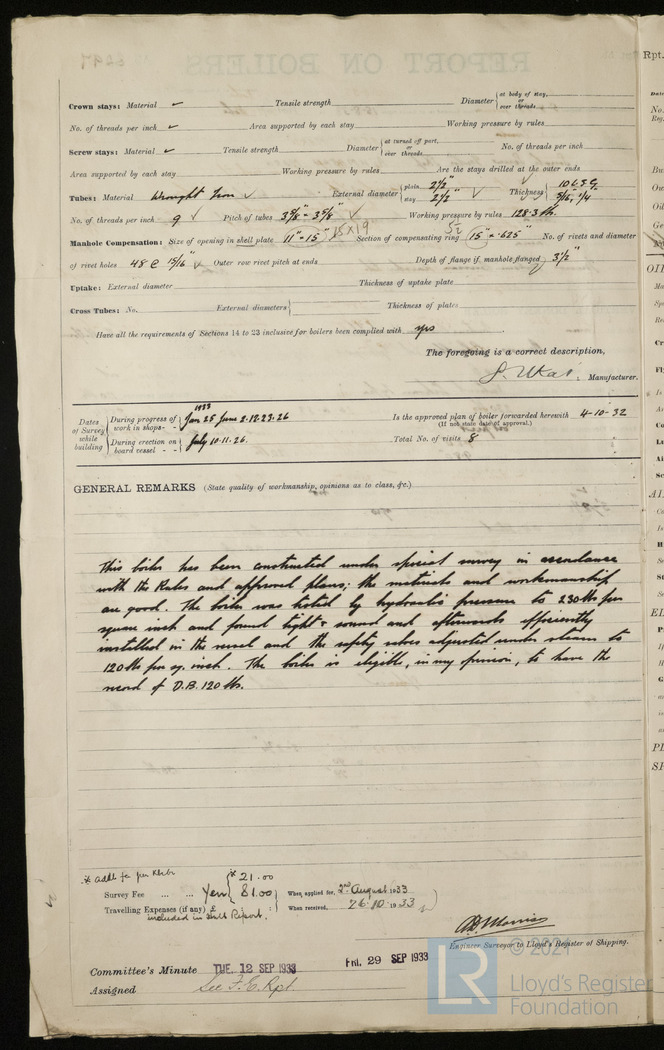 Crown stays: Material ✓ Tensile strength Diameter { at body of stay, or over threads
No. of threads per inch ✓ Area supported by each stay Working pressure by rules
Screw stays: Material ✓ Tensile strength Diameter { at turned off part, or over threads No. of threads per inch
Area supported by each stay Working pressure by rules Are the stays drilled at the outer ends
Tubes: Material Wrought Iron ✓ External diameter { plain 2½" stay 2½" ✓ Thickness { 10 L.S.G. 5/16, 1/4
No. of threads per inch 9 ✓ Pitch of tubes 3 5/8" × 3 5/8" ✓ Working pressure by rules 128.3 lb.
Manhole Compensation: Size of opening in shell plate 11" × 15" 15 × 19 Section of compensating ring 15" × .625" No. of rivets and diameter
of rivet holes 48 @ 15/16" ✓ Outer row rivet pitch at ends Depth of flange if manhole flanged 3½"
Uptake: External diameter Thickness of uptake plate
Cross Tubes: No. External diameters { Thickness of plates
Have all the requirements of Sections 14 to 23 inclusive for boilers been complied with yes
The foregoing is a correct description,
Manufacturer.
1933
Dates of Survey while building { During progress of work in shops - - Jan 25 June 2.12.23.26
During erection on board vessel - - July 10.11.26.
Is the approved plan of boiler forwarded herewith 4-10-32
(If not state date of approval.)
Total No. of visits 8
GENERAL REMARKS (State quality of workmanship, opinions as to class, &c.)
This boiler has been constructed under special survey in accordance
with the Rules and approved plans; the materials and workmanship
are good. The boiler was tested by hydraulic pressure to 230 lbs per
square inch and found tight & sound and afterwards efficiently
installed in the vessel and the safety valves adjusted under steam to
120 lbs per sq. inch. The boiler is eligible, in my opinion, to have the
record of D.B. 120 lbs.
* addl fee per
* 21.00
Survey Fee ... ... Yen 81.00 When applied for, 2nd August 1933
Travelling Expenses (if any) £ included in Hull Report. When received, 26.10.1933
Engineer Surveyor to Lloyd's Register of Shipping.
Committee's Minute TUE. 12 SEP 1933 FRI. 29 SEP 1933
Assigned See F.E. Rpt
© 2021
LR Lloyd's Register
Foundation